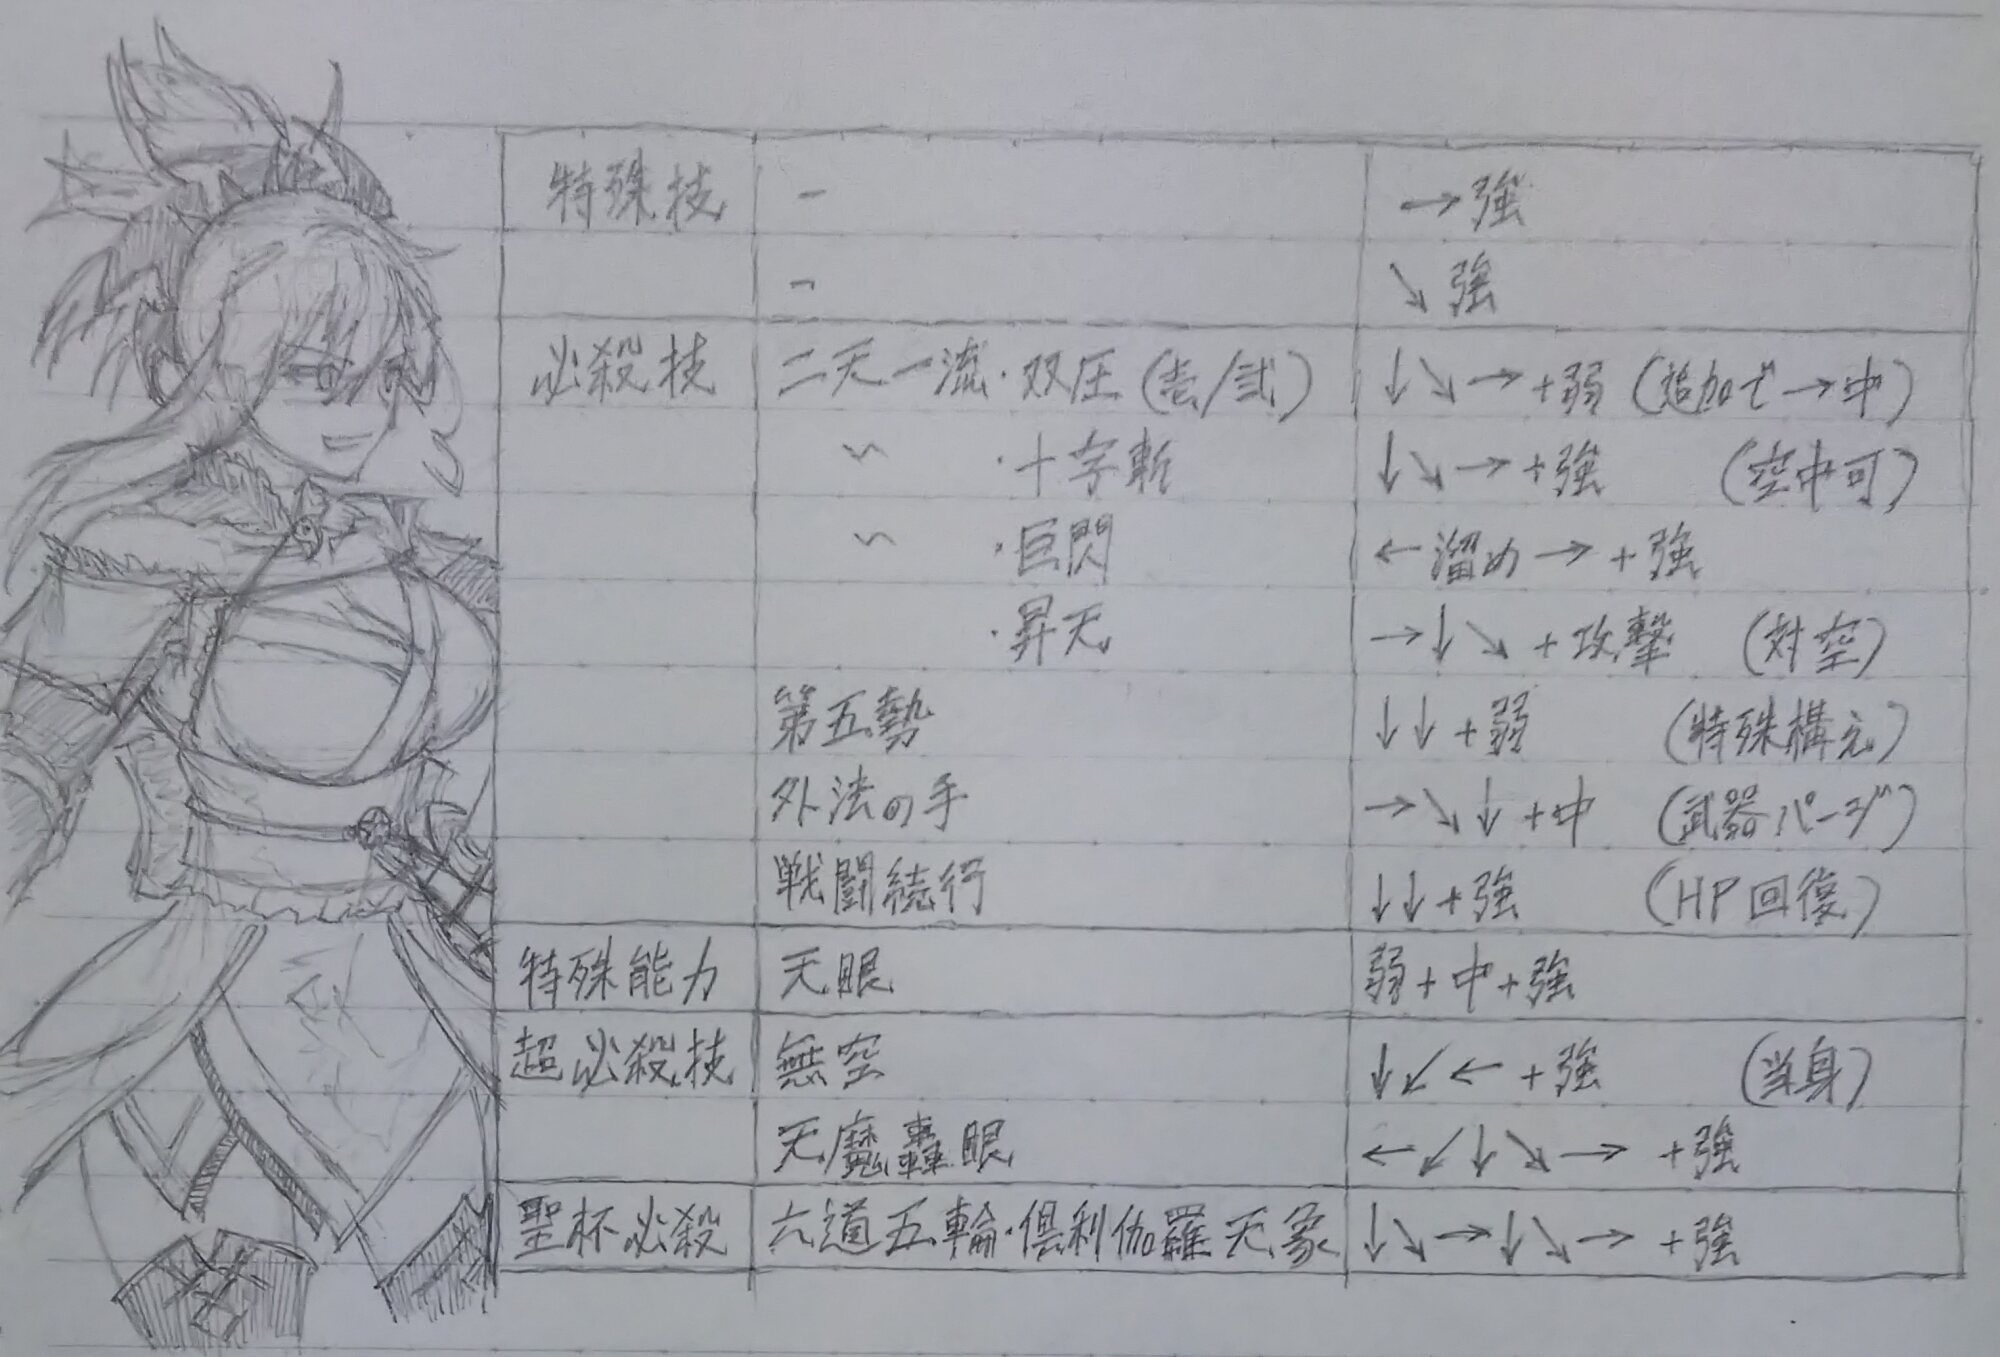 特殊技 ー →強
ー ↘強
必殺技 二天一流・双圧(壱/弐) ↓↘→+弱(追加で→中)
〃 ・十字斬 ↓↘→+強 (空中可)
〃 ・巨閃 ←溜め→+強
・昇天 →↓↘+攻撃 (対空)
第五勢 ↓↓+弱 (特殊構え)
外法の手 →↘↓+中 (武器パージ)
戦闘続行 ↓↓+強 (HP回復)
特殊能力 天眼 弱+中+強
超必殺技 無空 ↓↙←+強 (当身)
天魔轟眼 ←↙↓↘→+強
聖杯必殺 六道五輪・倶利伽羅天象 ↓↘→↓↘→+強